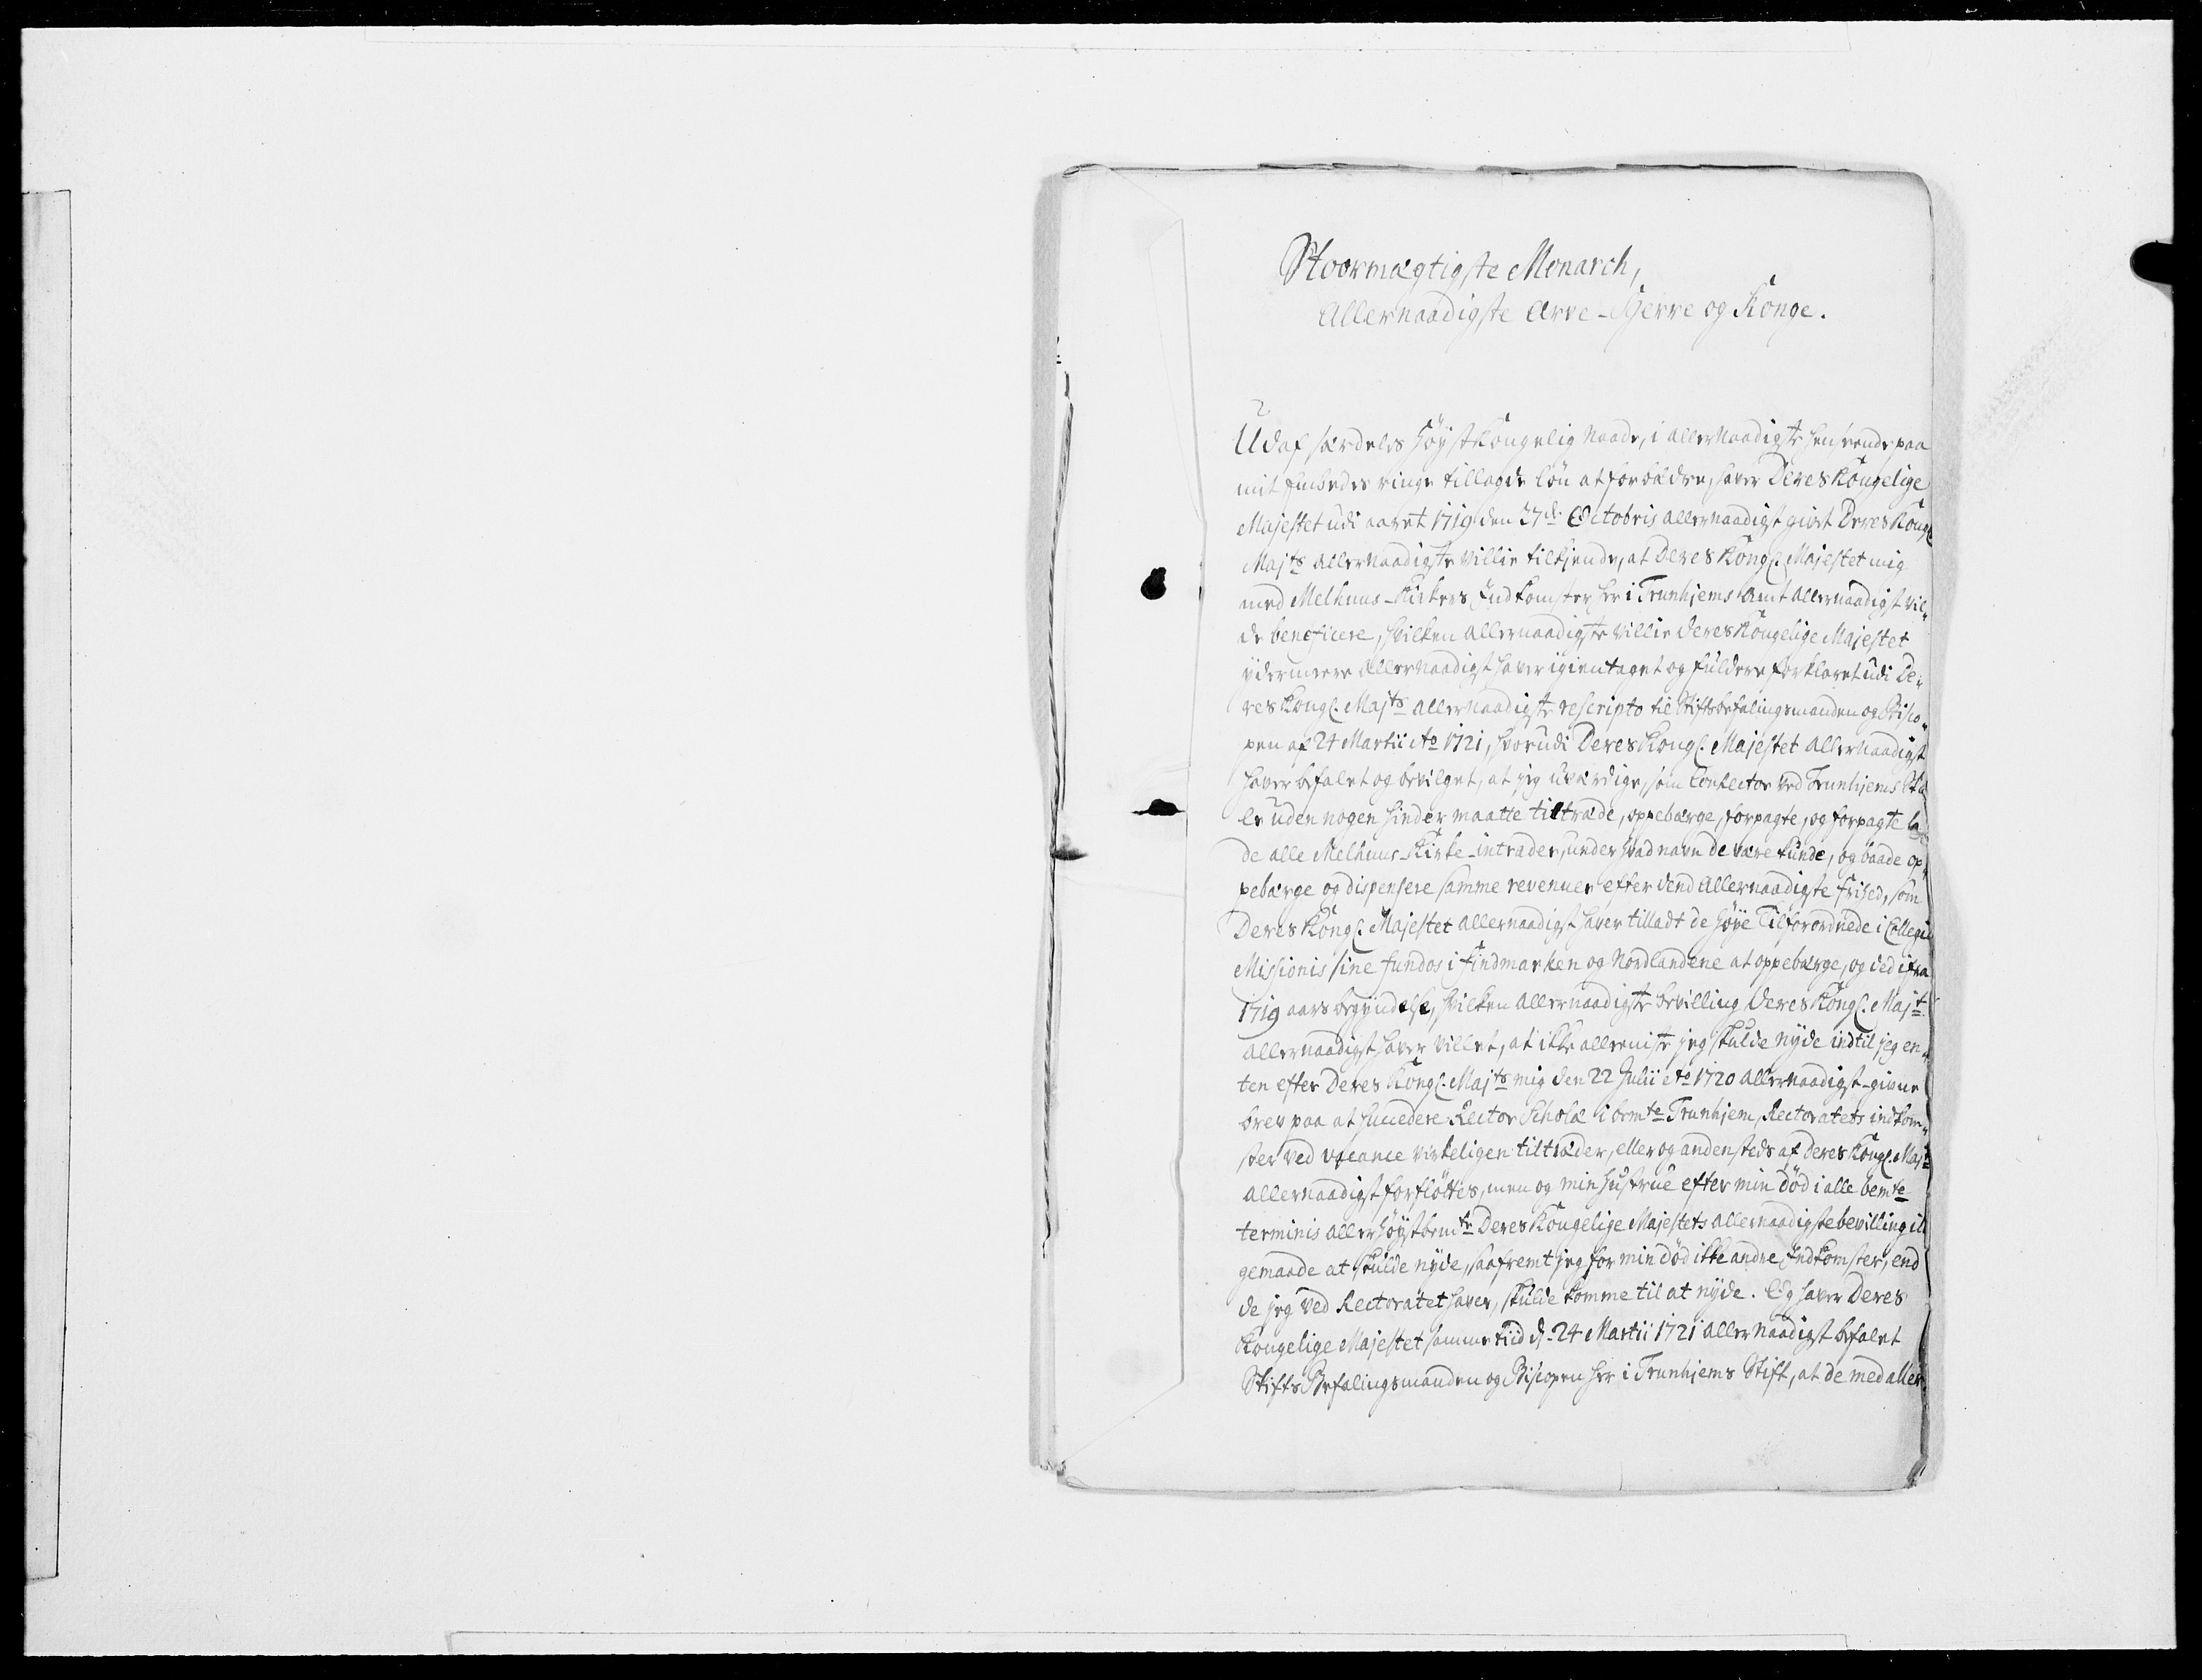 Stoormægtigste Monarch,
Allernaadigste Arve-Herre og Konge.
Udaf særdeles Høyst Kongelig Naade, i allernaadigste henseende paa
mit ringe tillagde løn at forbædre, haver Deres Kongelige
Majestet udi aaret 1719 den 27d. Octobris allernaadigst givet Deres Kongl.
Majts allernaadigste villie tilkjende, at Deres Kongl. Majestet mig
med Melhuus-Kirkes Indkomster her i Trunhjems Amt allernaadigst vil„
de beneficere, hvilken allernaadigste villie Deres Kongelige Majestet
ydermeere allernaadigst haver igientaget og fuldere forklaret udi De„
res Kongl. Majts allernaadigste rescripto til Stiftsbefalingsmanden og Bisco„
pen af 24 Martii Ao 1721, hvorudi Deres Kongl. Majestet allernaadigst
haver befalet og bevilget, at jeg uværdige, som Conrector ved Trunhjems Sko
le uden nogen hinder maatte tiltræde, oppebærge, forpagte, og forpagte la„
de alle Melhuus-Kirke-intrader, under hvad navn de være kunde, og baade op„
pebærge og dispensere samme revenuer efter dend allernaadigste frihed, som
Deres Kongl. Majestet allernaadigst haver tilladt de høye Tilforordnede i Collegio
Missionis sine fundos i Findmarken og Nordlandene at oppebærge, og ded ifra
1719 aars begyndelse, hvilken allernaadigste bevilling Deres Kongl. Majt
allernaadigst haver villet, at ikke alleeniste jeg skulde nyde indtil jeg en„
ten efter Deres Kongl. Majts mig den 22 Julii Ao 1720 allernaadigst-givne
brev paa at succedere Rector Scholæ i bemte Trunhjem, Rectoratets indkom„
ster ved vacance virkeligen tiltræder, eller og andensteds af Deres Kongl. Majt
allernaadigst forfløttes, men og min hustrue efter min død i alle bemte
terminis allerhøystbemte Deres Kongelige Majestets allernaadigste bevilling ili
gemaade at skulde nyde, saafremt jeg for min død ikke andre Indkomster, end
de jeg ved Rectoratet haver, skulde komme til at nyde. Og haver Deres
Kongelige Majestet samme tiid d. 24 Martii 1721 allernaadigst befalet
Stifts Befalingsmanden og Biscopen her i Trunhjems Stift, at de med aller„